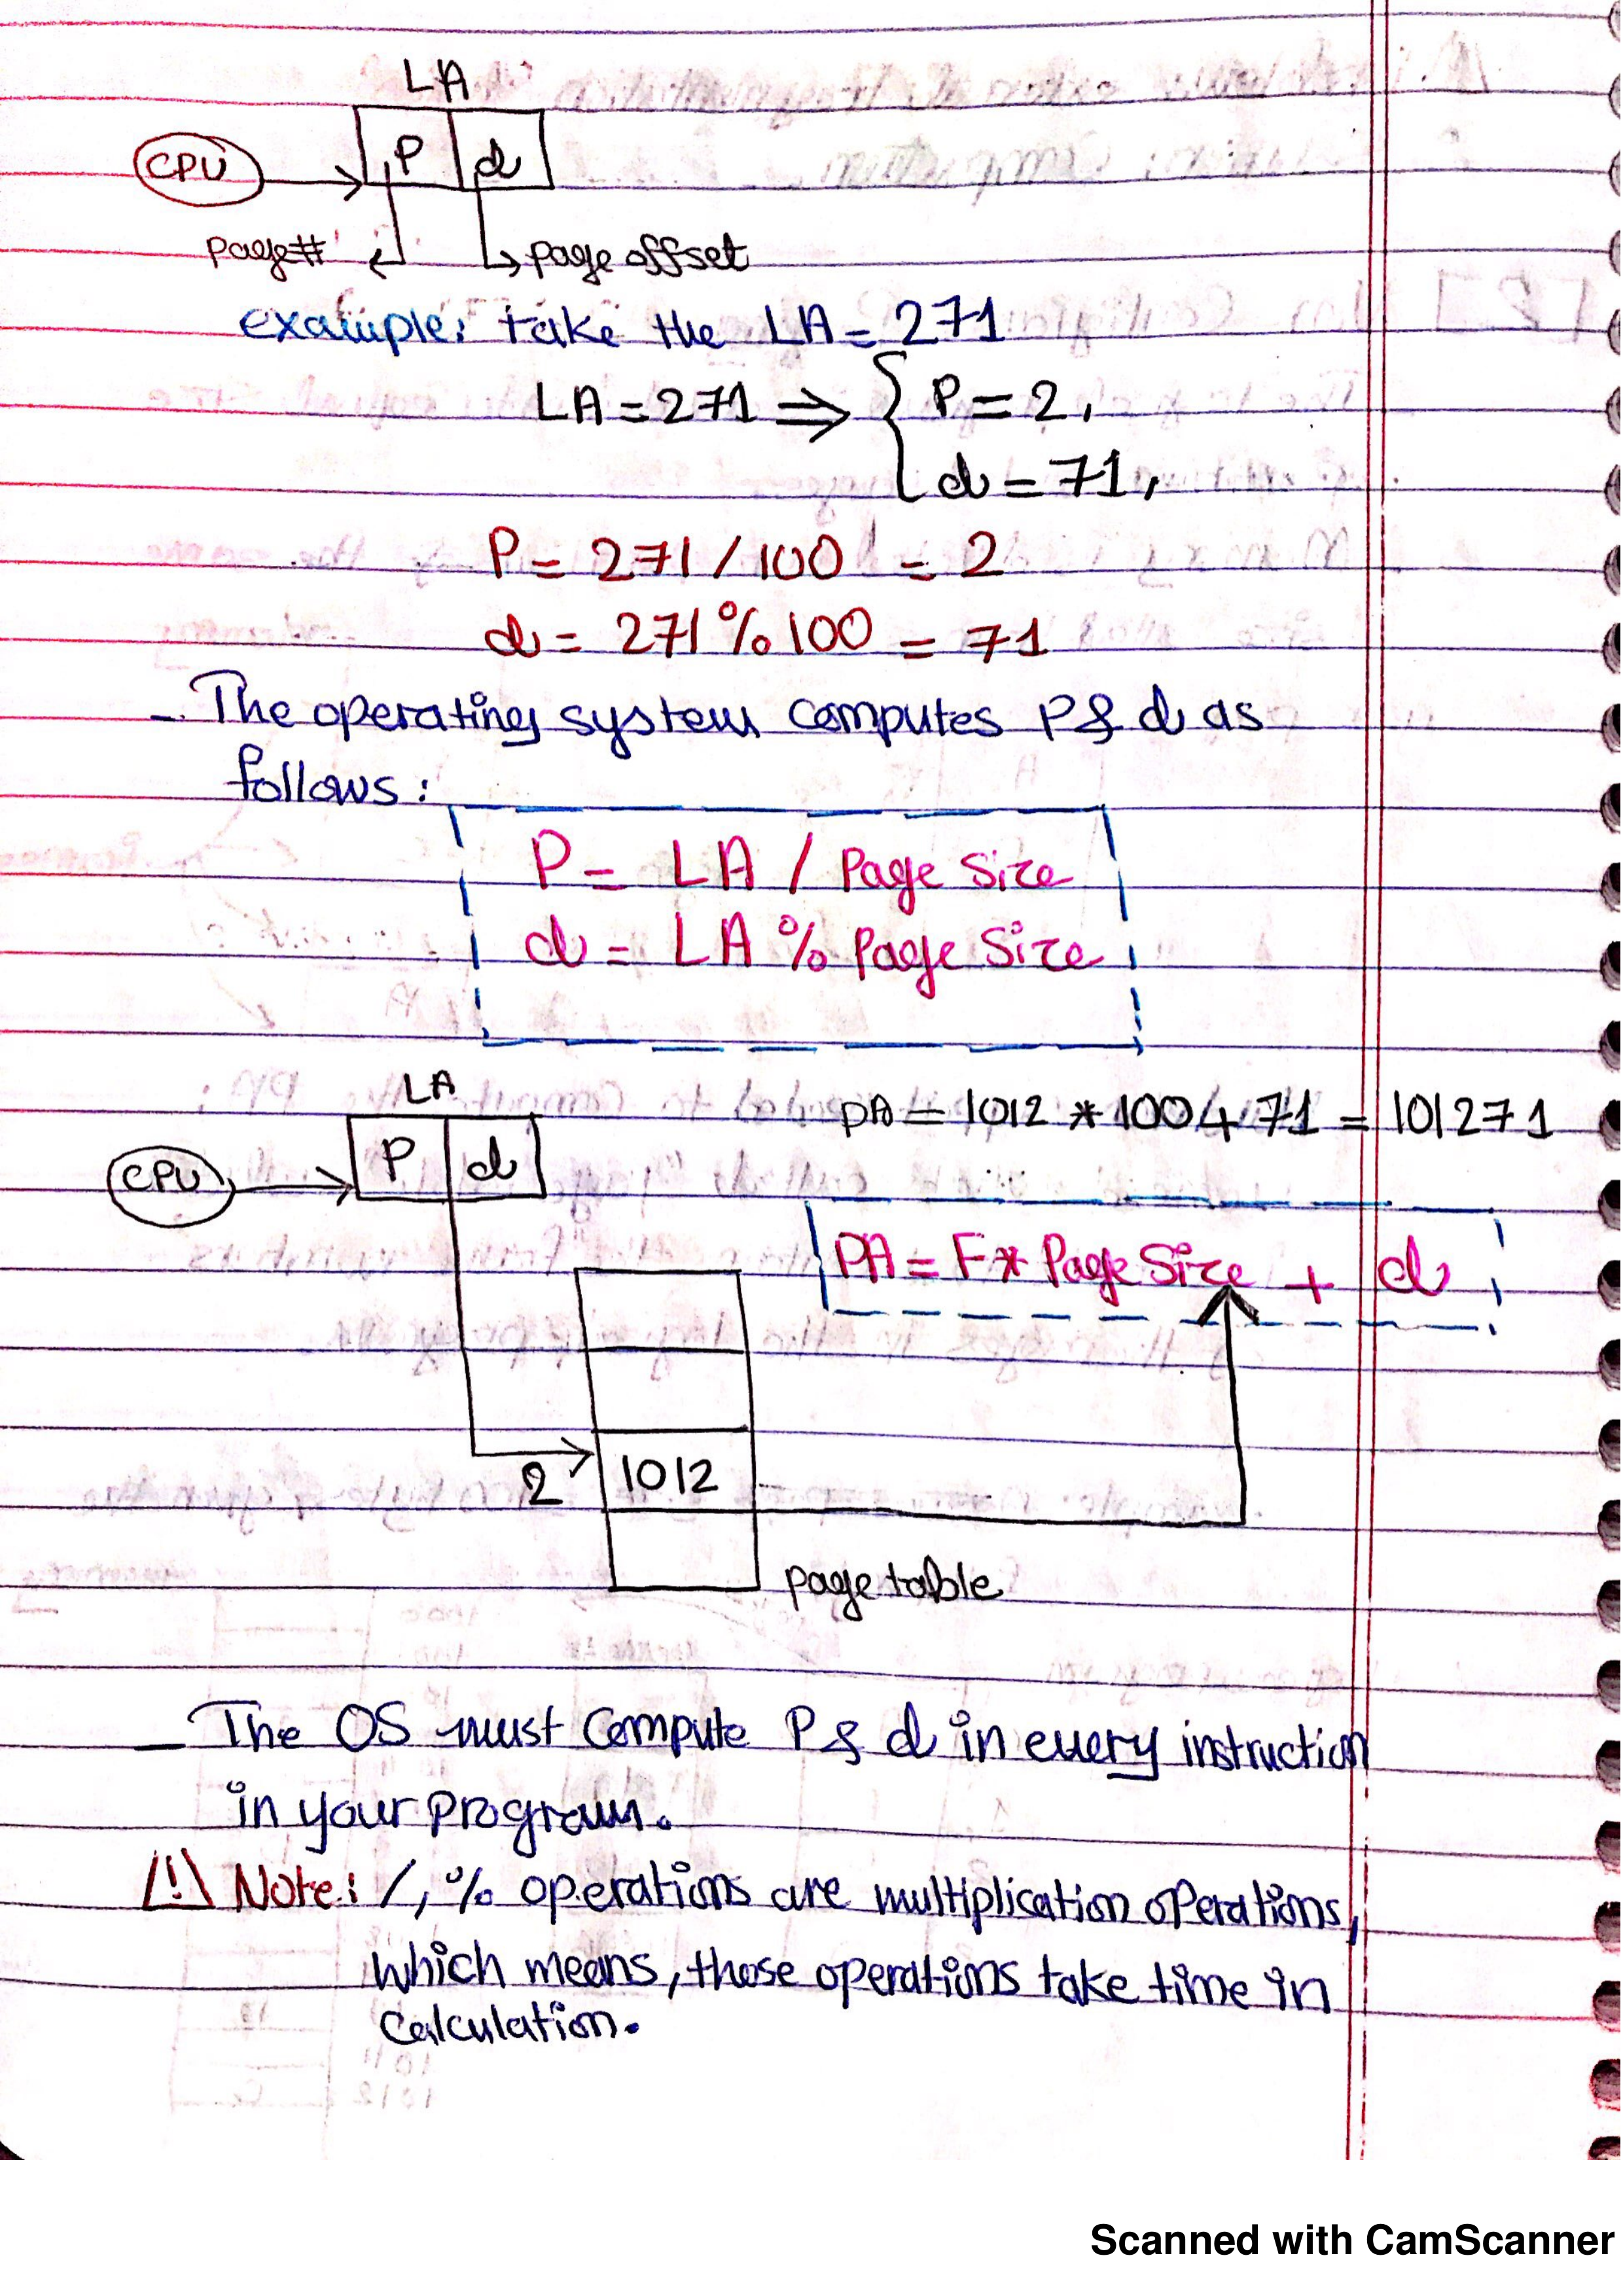 LA
CPU P d
page# page offset
example: take the LA = 271
LA = 271 ⇒ { P = 2,
d = 71,
P = 271 / 100 = 2
d = 271 % 100 = 71
- The operating system computes P & d as
follows:
P = LA / Page Size
d = LA % Page Size
LA
PA = 1012 * 100 + 71 = 101271
CPU P d
PA = F * Page Size + d
2 1012
page table
- The OS must compute P & d in every instruction
in your program.
⚠ Note: /, % operations are multiplication operations,
which means, those operations take time in
calculation.
Scanned with CamScanner